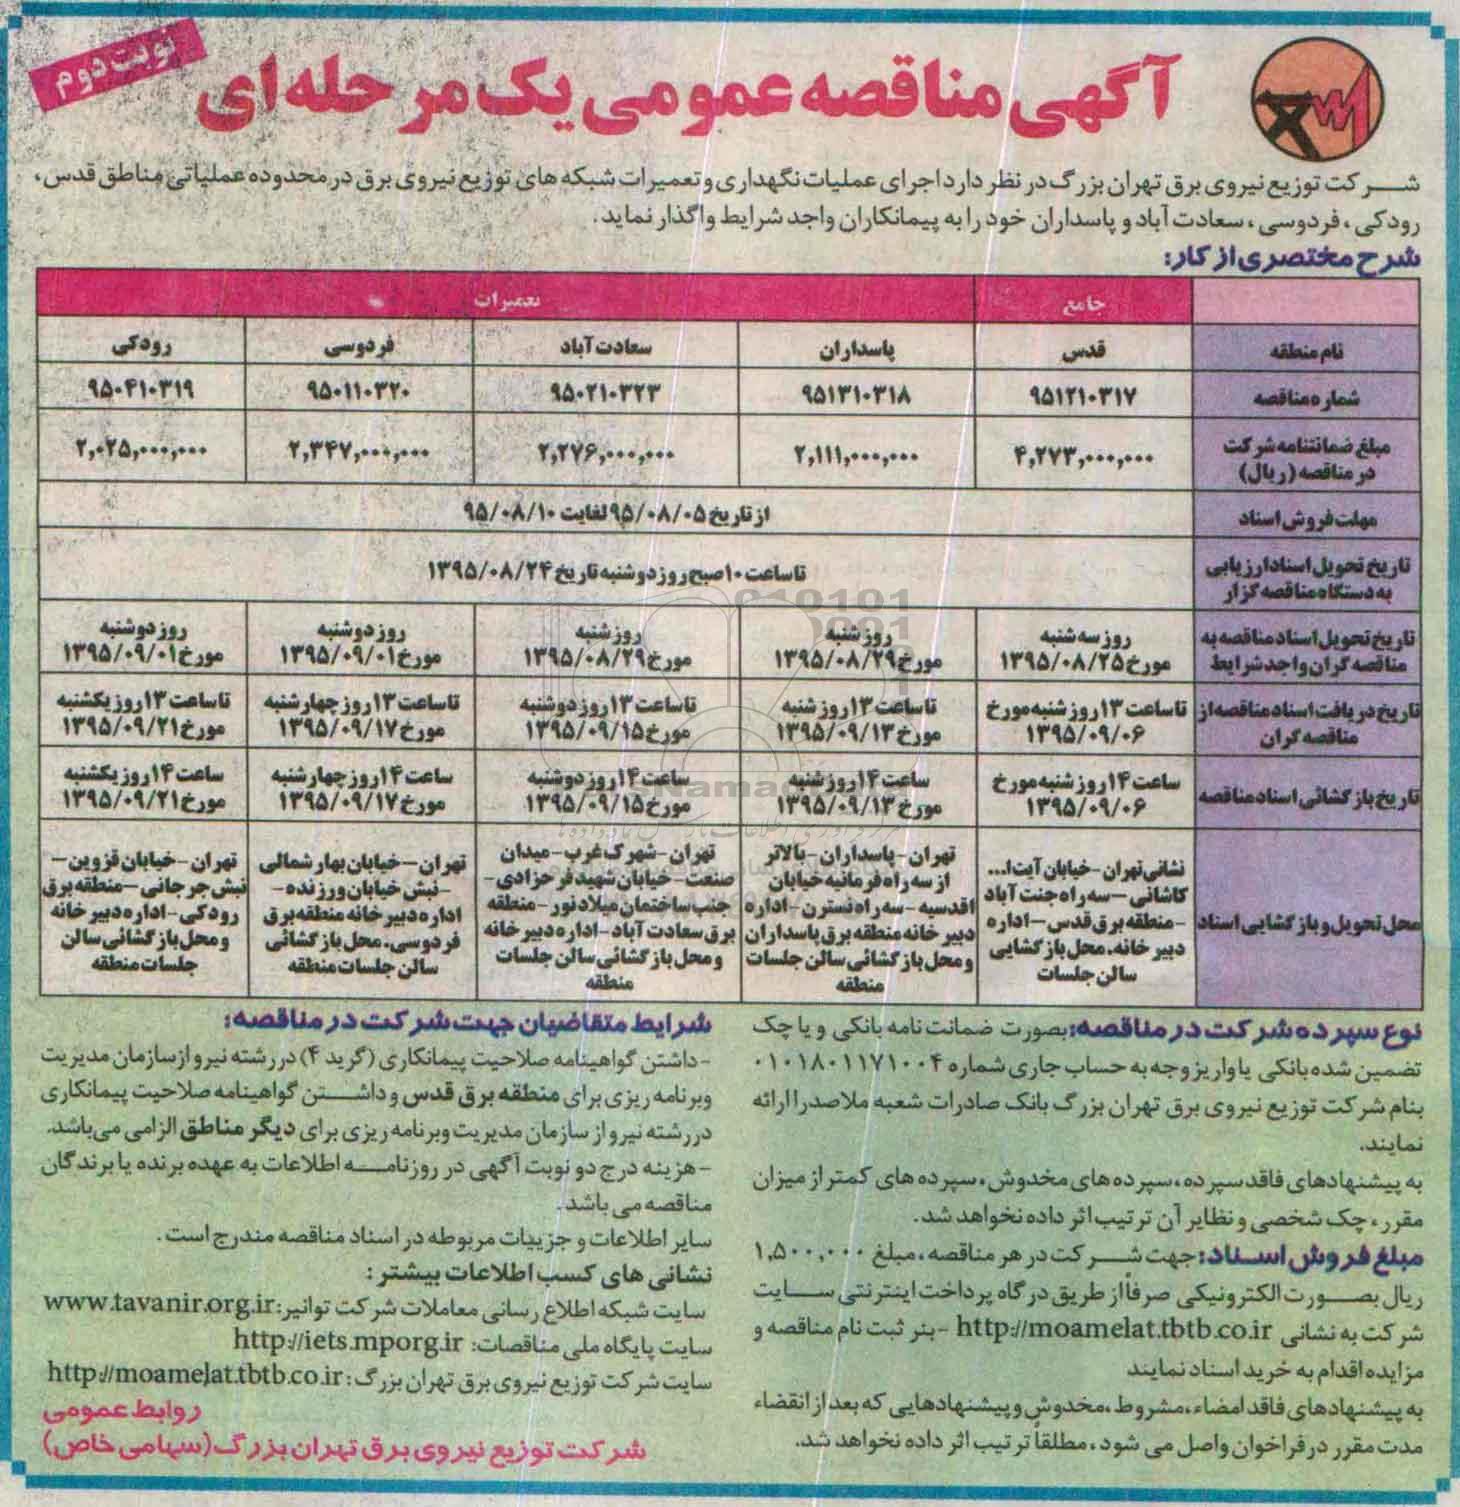 نوبت دوم
آگهی مناقصه عمومی یک مرحله ای
شرکت توزیع نیروی برق تهران بزرگ در نظر دارد اجرای عملیات نگهداری و تعمیرات شبکه های توزیع نیروی برق در محدوده عملیاتی مناطق قدس،
رودکی، فردوسی، سعادت آباد و پاسداران خود را به پیمانکاران واجد شرایط واگذار نماید.
شرح مختصری از کار:
جامع تعمیرات
نام منطقه قدس پاسداران سعادت آباد فردوسی رودکی
شماره مناقصه ۹۵۱۲۱۰۳۱۷ ۹۵۱۳۱۰۳۱۸ ۹۵۰۲۱۰۳۲۳ ۹۵۰۱۱۰۳۲۰ ۹۵۰۴۱۰۳۱۹
مبلغ ضمانتنامه شرکت
در مناقصه (ریال) ۴,۲۷۳,۰۰۰,۰۰۰ ۲,۱۱۱,۰۰۰,۰۰۰ ۲,۲۷۶,۰۰۰,۰۰۰ ۲,۳۴۷,۰۰۰,۰۰۰ ۲,۰۲۵,۰۰۰,۰۰۰
مهلت فروش اسناد از تاریخ ۹۵/۰۸/۰۵ لغایت ۹۵/۰۸/۱۰
تاریخ تحویل اسناد ارزیابی
به دستگاه مناقصه گزار تا ساعت ۱۰ صبح روز دوشنبه تاریخ ۱۳۹۵/۰۸/۲۴
تاریخ تحویل اسناد مناقصه به
مناقصه گران واجد شرایط
روز سه شنبه
مورخ ۱۳۹۵/۰۸/۲۵
روز شنبه
مورخ ۱۳۹۵/۰۸/۲۹
روز شنبه
مورخ ۱۳۹۵/۰۸/۲۹
روز دوشنبه
مورخ ۱۳۹۵/۰۹/۰۱
روز دوشنبه
مورخ ۱۳۹۵/۰۹/۰۱
تاریخ دریافت اسناد مناقصه از
مناقصه گران
تا ساعت ۱۳ روز شنبه مورخ
۱۳۹۵/۰۹/۰۶
تا ساعت ۱۳ روز شنبه
مورخ ۱۳۹۵/۰۹/۱۳
تا ساعت ۱۳ روز دوشنبه
مورخ ۱۳۹۵/۰۹/۱۵
تا ساعت ۱۳ روز چهارشنبه
مورخ ۱۳۹۵/۰۹/۱۷
تا ساعت ۱۳ روز یکشنبه
مورخ ۱۳۹۵/۰۹/۲۱
تاریخ بازگشائی اسناد مناقصه
ساعت ۱۴ روز شنبه مورخ
۱۳۹۵/۰۹/۰۶
ساعت ۱۴ روز شنبه
مورخ ۱۳۹۵/۰۹/۱۳
ساعت ۱۴ روز دوشنبه
مورخ ۱۳۹۵/۰۹/۱۵
ساعت ۱۴ روز چهارشنبه
مورخ ۱۳۹۵/۰۹/۱۷
ساعت ۱۴ روز یکشنبه
مورخ ۱۳۹۵/۰۹/۲۱
محل تحویل و بازگشایی اسناد
نشانی تهران - خیابان آیت ا...
کاشانی - سه راه جنت آباد
- منطقه برق قدس - اداره
دبیرخانه. محل بازگشایی
سالن جلسات
تهران - پاسداران - بالاتر
از سه راه فرمانیه خیابان
اقدسیه - سه راه نسترن - اداره
دبیرخانه منطقه برق پاسداران
و محل بازگشائی سالن جلسات
منطقه
تهران - شهرک غرب - میدان
صنعت - خیابان شهید فرحزادی -
جنب ساختمان میلاد نور - منطقه
برق سعادت آباد - اداره دبیرخانه
و محل بازگشائی سالن جلسات
منطقه
تهران - خیابان بهار شمالی
- نبش خیابان ورزنده -
اداره دبیرخانه منطقه برق
فردوسی. محل بازگشائی
سالن جلسات منطقه
تهران - خیابان قزوین -
نبش جرجانی - منطقه برق
رودکی - اداره دبیرخانه
و محل بازگشائی سالن
جلسات منطقه
نوع سپرده شرکت در مناقصه: بصورت ضمانت نامه بانکی و یا چک
تضمین شده بانکی یا واریز وجه به حساب جاری شماره ۰۱۰۱۸۰۱۱۷۱۰۰۴
بنام شرکت توزیع نیروی برق تهران بزرگ بانک صادرات شعبه ملاصدرا ارائه
نمایند.
به پیشنهادهای فاقد سپرده، سپرده های مخدوش، سپرده های کمتر از میزان
مقرر، چک شخصی و نظایر آن ترتیب اثر داده نخواهد شد.
مبلغ فروش اسناد: جهت شرکت در هر مناقصه، مبلغ ۱,۵۰۰,۰۰۰
ریال بصورت الکترونیکی صرفاً از طریق درگاه پرداخت اینترنتی سایت
شرکت به نشانی http://moamelat.tbtb.co.ir - بنر ثبت نام مناقصه و
مزایده اقدام به خرید اسناد نمایند
به پیشنهادهای فاقد امضاء، مشروط، مخدوش و پیشنهادهایی که بعد از انقضاء
مدت مقرر در فراخوان واصل می شود، مطلقاً ترتیب اثر داده نخواهد شد.
شرایط متقاضیان جهت شرکت در مناقصه:
- داشتن گواهینامه صلاحیت پیمانکاری (گرید ۴) در رشته نیرو از سازمان مدیریت
و برنامه ریزی برای منطقه برق قدس و داشتن گواهینامه صلاحیت پیمانکاری
در رشته نیرو از سازمان مدیریت و برنامه ریزی برای دیگر مناطق الزامی می باشد.
- هزینه درج دو نوبت آگهی در روزنامه اطلاعات به عهده برنده یا برندگان
مناقصه می باشد.
سایر اطلاعات و جزییات مربوطه در اسناد مناقصه مندرج است.
نشانی های کسب اطلاعات بیشتر:
سایت شبکه اطلاع رسانی معاملات شرکت توانیر: www.tavanir.org.ir
سایت پایگاه ملی مناقصات: http://iets.mporg.ir
سایت شرکت توزیع نیروی برق تهران بزرگ: http://moamelat.tbtb.co.ir
روابط عمومی
شرکت توزیع نیروی برق تهران بزرگ (سهامی خاص)